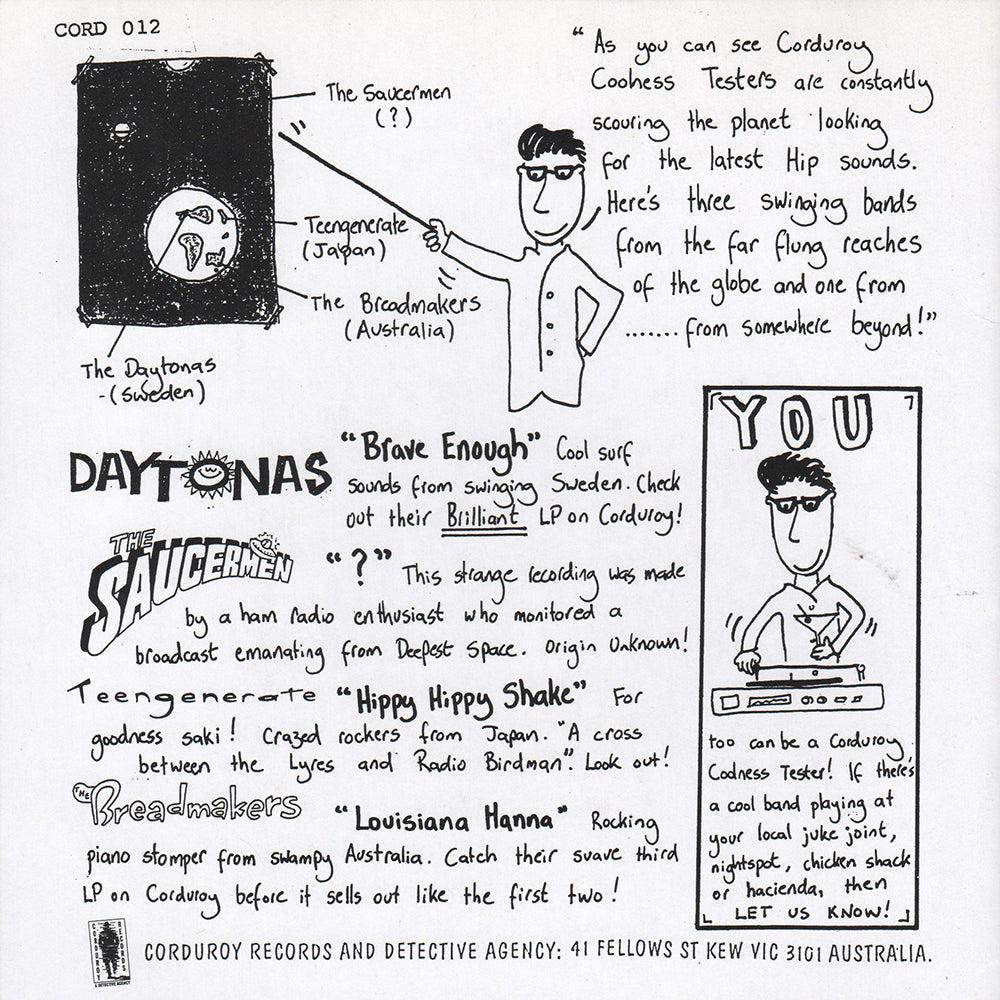 CORD 012
The Saucermen
(?)
Teengenerate
(Japan)
The Breadmakers
(Australia)
The Daytonas
-(Sweden)
"As you can see Corduroy
Coolness Testers are constantly
scouring the planet looking
for the latest Hip sounds.
Here's three swinging bands
from the far flung reaches
of the globe and one from
.......from somewhere beyond!"
DAYTONAS "Brave Enough" Cool surf
sounds from swinging Sweden. Check
out their Brilliant LP on Corduroy!
THE SAUCERMEN "?" This strange recording was made
by a ham radio enthusiast who monitored a
broadcast emanating from Deepest Space. Origin Unknown!
Teengenerate "Hippy Hippy Shake" For
goodness saki! Crazed rockers from Japan. "A cross
between the Lyres and Radio Birdman". Look out!
THE Breadmakers "Louisiana Hanna" Rocking
piano stomper from swampy Australia. Catch their suave third
LP on Corduroy before it sells out like the first two!
YOU
too can be a Corduroy
Coolness Tester! If there's
a cool band playing at
your local juke joint,
nightspot, chicken shack
or hacienda, then
LET US KNOW!
CORDUROY RECORDS
& DETECTIVE AGENCY
CORDUROY RECORDS AND DETECTIVE AGENCY: 41 FELLOWS ST KEW VIC 3101 AUSTRALIA.